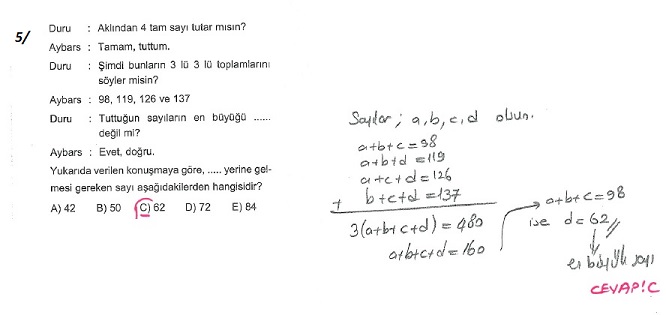 5/
Duru : Aklından 4 tam sayı tutar mısın?
Aybars : Tamam, tuttum.
Duru : Şimdi bunların 3 lü 3 lü toplamlarını
söyler misin?
Aybars : 98, 119, 126 ve 137
Duru : Tuttuğun sayıların en büyüğü ......
değil mi?
Aybars : Evet, doğru.
Yukarıda verilen konuşmaya göre, ..... yerine gel-
mesi gereken sayı aşağıdakilerden hangisidir?
A) 42 B) 50 C) 62 D) 72 E) 84
Sayılar; a,b,c,d olsun.
a+b+c=98
a+b+d=119
a+c+d=126
+ b+c+d=137
3(a+b+c+d)=480
a+b+c+d=160
a+b+c=98
ise d=62//
en büyük sayı
CEVAP:C